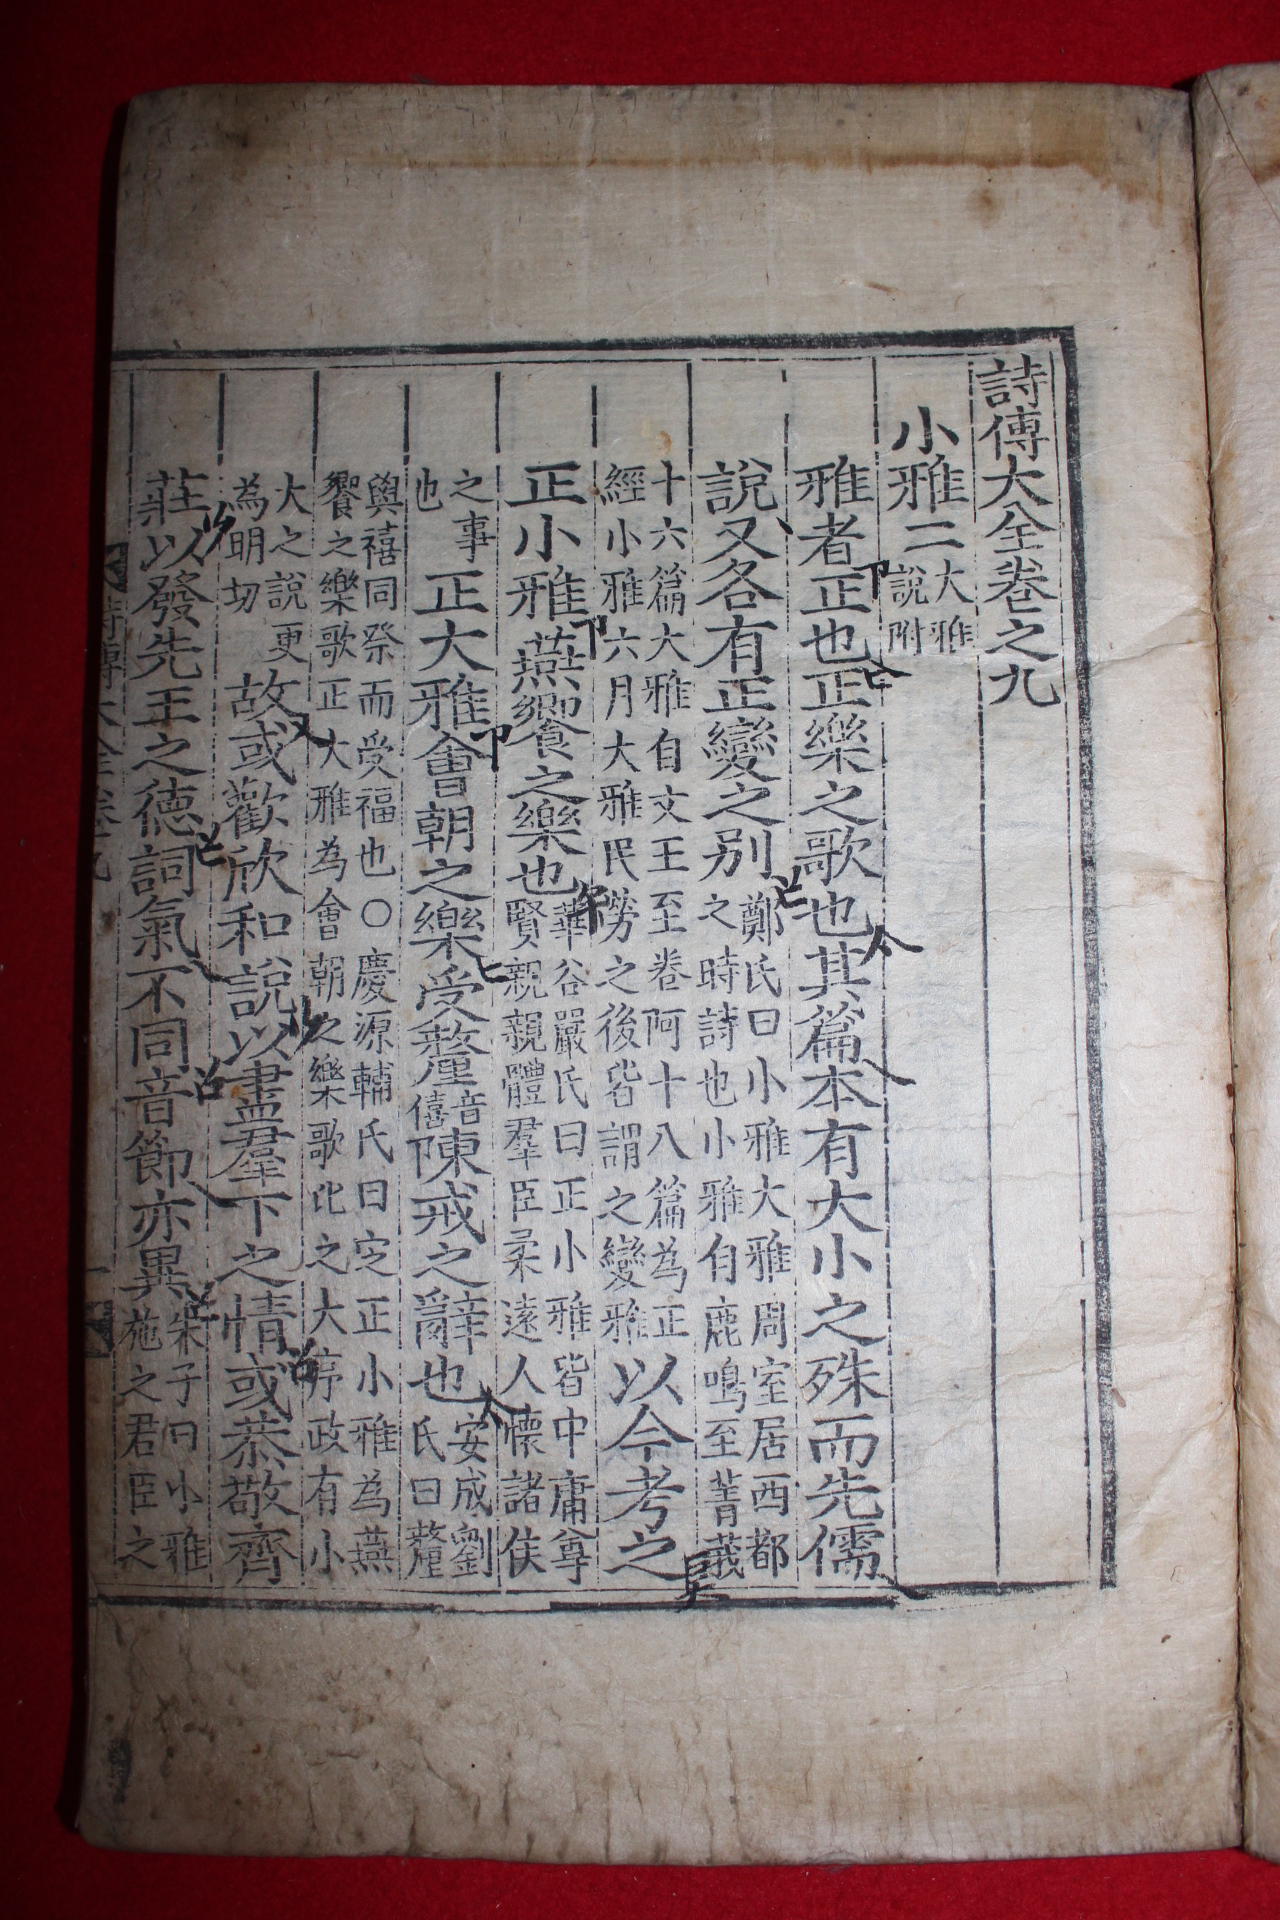 詩傳大全卷之九
小雅二大雅說附
雅者正也正樂之歌也其篇本有大小之殊而先儒
說又各有正變之别鄭氏曰小雅大雅周室居西都之時詩也小雅自鹿鳴至菁莪
十六篇大雅自文王至卷阿十八篇為正經小雅六月大雅民勞之後皆謂之變雅以今考之
正小雅燕饗之樂也華谷嚴氏曰正小雅皆中庸尊賢親親體羣臣柔遠人懷諸侯
之事也正大雅會朝之樂受釐音僖陳戒之辭也安成劉氏曰釐
與禧同祭而受福也○慶源輔氏曰定正小雅為燕饗之樂歌正大雅為會朝之樂歌比之大序政有小
大之說更為明切故或歡欣和說以盡羣下之情或恭敬齊
莊以發先王之德詞氣不同音節亦異朱子曰小雅施之君臣之